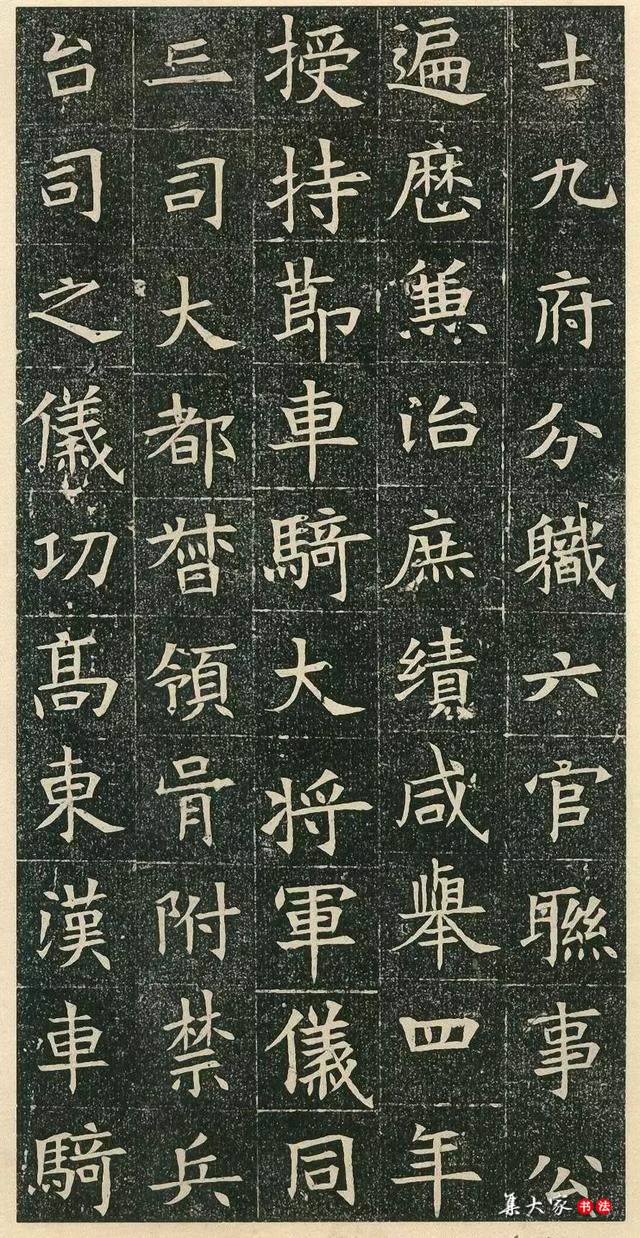 士九府分職六官聯事公
遍歷兼治庶績咸舉四年
授持節車騎大將軍儀同
三司大都督領胥附禁兵
台司之儀功高東漢車騎
集大家書法